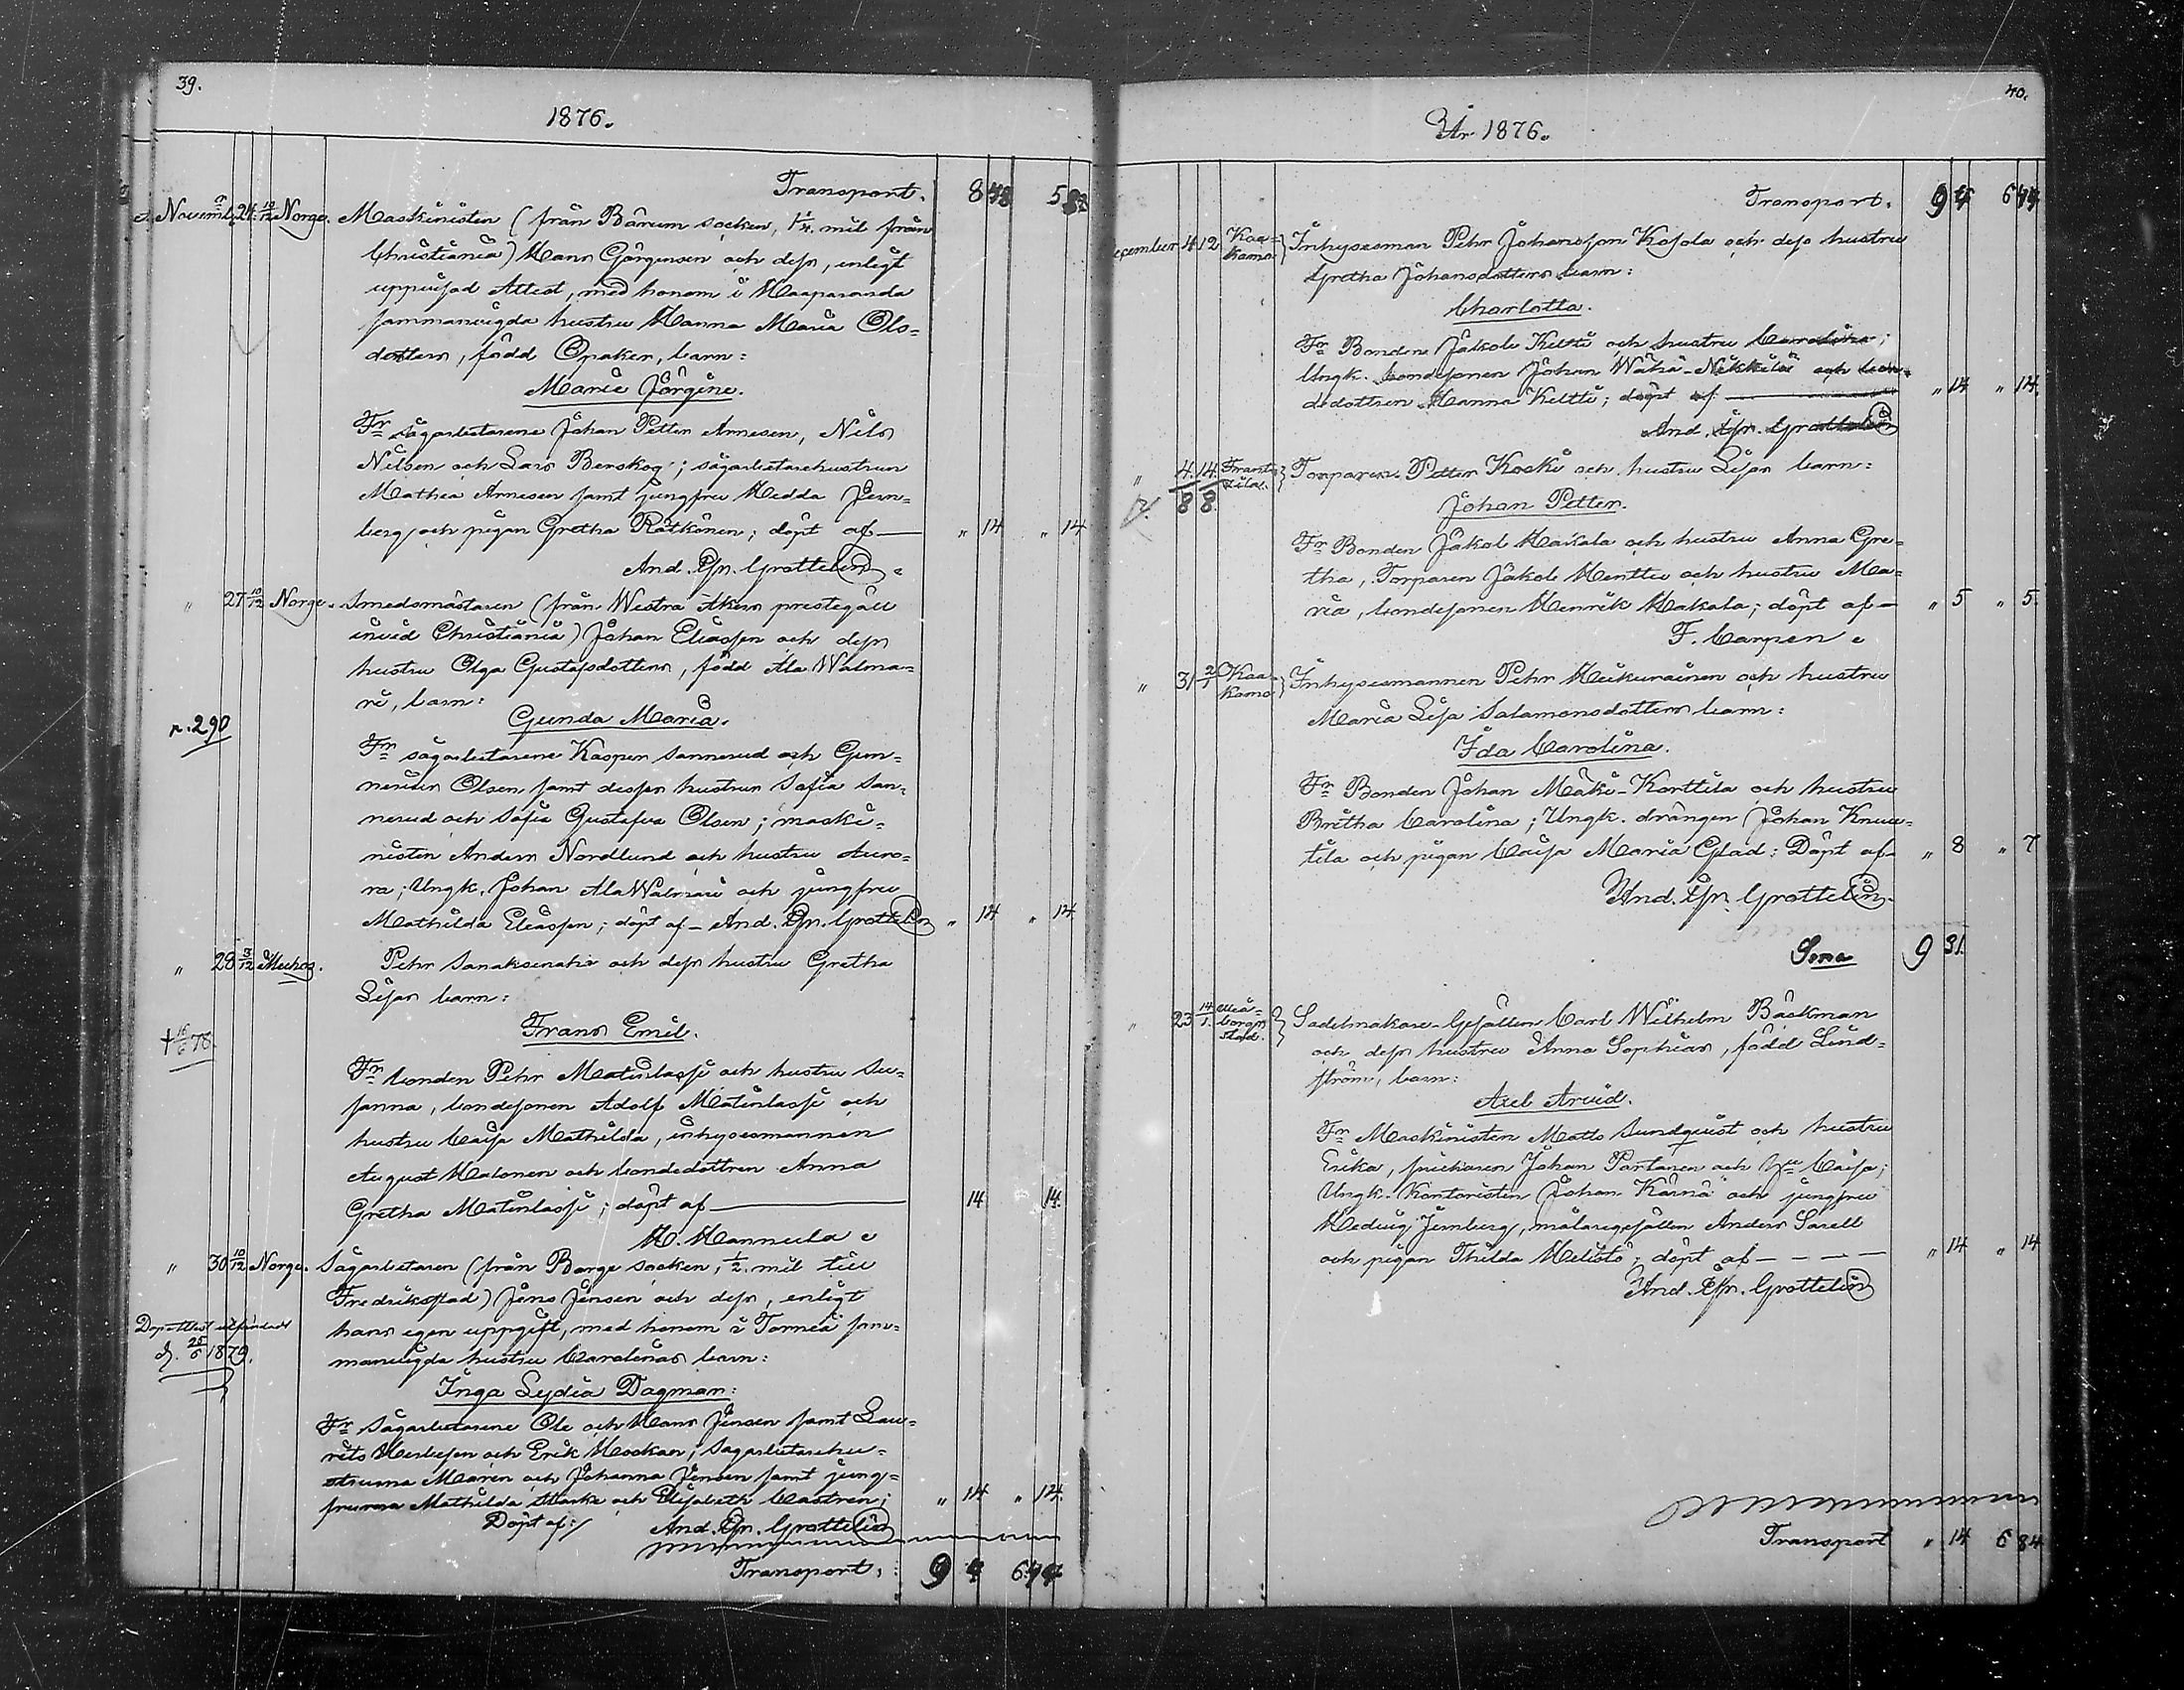 39.
1876.
Transport. 8 5
Novemb. 24. 10/12 Norge. Maskinisten (från Bärum socken, 1 1/4. mil från
Christiania) Hans Görgensen och dess, enligt
uppvisad Attest, med honom i Haaparanda
sammanvigda hustru Hanna Maria Ols-
dotters, född Opaker, barn:
Marie Jörgine.
Fr sågarbetarene Johan Petter Arnesen, Nils
Nilsen och Lars Berskog; sågarbetarehustrun
Mathia Arnesen samt jungfru Hedda Jern-
berg och pigan Gretha Rätkönen; döpt af — " 14 " 14
And. Gr. Grottelin
" 27 10/12 Norge. Smedsmästaren (från Westra Akers prestegäll
invid Christiania) Johan Eliassen och dess
hustru Olga Gustafsdotters, född Ala Walma-
ri, barn:
Gunda Maria.
n. 290
Fr sågarbetarene Kasper Sannerud och Gun-
nerius Olsen samt desses hustrur Sofia San-
nerud och Sofie Gustafva Olsen; maski-
nisten Anders Nordlund och hustru Auro-
ra; Ungk. Johan Ala Walmari och jungfru
Mathilda Eliassen; döpt af — And. Gr. Grottelin " 14 " 14
" 28 3/12 Muhos. Pehr Sanaksenaho och dess hustru Gretha
Lisas barn:
Frans Emil.
† 16/6 78.
Fr bonden Pehr Matinlassi och hustru Su-
sanna, bondesonen Adolf Matinlassi och
hustru Caisa Mathilda, inhysesmannen
August Halonen och bondedottren Anna
Gretha Matinlassi; döpt af — 14 14.
H. Mannula
" 30 10/12 Norge. Sågarbetaren (från Borge socken, 1/2. mil till
Fredrikstad) Jens Jensen och dess, enligt
hans egen uppgift, med honom i Torneå sam-
manvigda hustru Carolinas barn:
Dopattest utfärdad
d. 25/5 1879.
Inga Lydia Dagmar:
Fr Sågarbetarene Ole och Hans Jensen samt Lau-
rits Herlufsen och Erik Mockaen; Sågarbetarehu-
strurna Maren och Johanna Jensen samt jung-
frurna Mathilda Marks och Elisabeth Castren; " 14 " 14.
Döpt af: And. Gr. Grottelin
Transport: 9 4 6
40.
År 1876.
Transport. 9 4 6
December 4. 12. Kaa-
kamo. Inhysesman Pehr Johansson Kosola och dess hustru
Gretha Johansdotters barn:
Charlotta.
Fr Bonden Jakob Keltti och hustru Carolina;
Ungk. bondesonen Johan Wähä-Nikkilä och bon-
dedottren Hanna Keltti; döpt af — " 14 " 14.
And. Gr. Grottelin
" 4. 14. Frant-
sila. Torparen Petter Koski och hustru Lisas barn:
8 8
Johan Petter.
Fr Bonden Jakob Haikala och hustru Anna Gre-
tha, Torparen Jakob Henttu och hustru Ma-
ria, bondesonen Henrik Makala; döpt af — " 5 " 5.
F. Carpen
" 31 2/1 Kaa-
kamo Inhysesmannen Pehr Heikurainen och hustru
Maria Lisa Salamonsdotters barn:
Ida Carolina.
Fr Bonden Johan Mäki-Korttila och hustru
Britha Carolina; Ungk. drängen Johan Knuu-
tila och pigan Caisa Maria Glad: Döpt af — " 8 " 7
And. Gr. Grottelin.
Sma 9 31.
" 23 14/1. Uleå-
borgs
stad. Sadelmakare-Gesällen Carl Wilhelm Bäckman
och dess hustru Anna Sophias, född Lind-
ström, barn:
Axel Arvid.
Fr Maskinisten Matts Sundquist och hustru
Erika, snickaren Johan Partanen och hu Caisa;
Ungk. Kontoristen Johan Kärnä och jungfru
Hedvig Jernberg, målaregesällen Anders Sarell
och pigan Thilda Melistö; döpt af — — — — " 14 " 14
And. Gr. Grottelin
Transport " 14 6 84